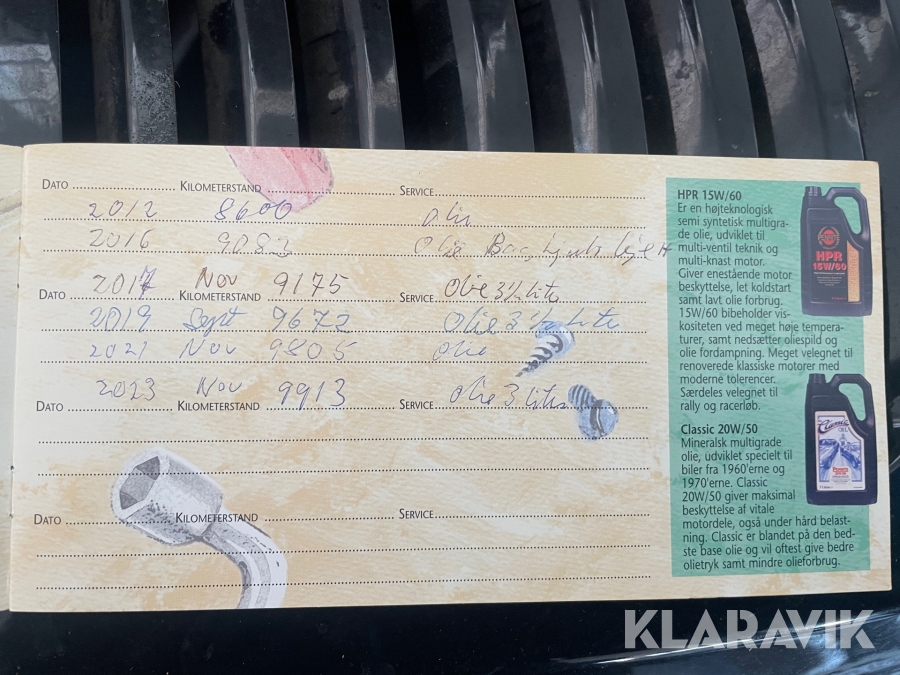 DATO KILOMETERSTAND SERVICE
2012 8600 olie
2016 9083 Olie
2017 Nov 9175 Olie 3½ Liter
DATO KILOMETERSTAND SERVICE
2019 Sept 9672 Olie 3½ Liter
2021 Nov 9805 Olie
2023 Nov 9913 Olie 3 Liter
DATO KILOMETERSTAND SERVICE
DATO KILOMETERSTAND SERVICE
HPR 15W/60
Er en højteknologisk
semi syntetisk multigra-
de olie, udviklet til
multi-ventil teknik og
multi-knast motor.
Giver enestående motor
beskyttelse, let koldstart
samt lavt olie forbrug.
15W/60 bibeholder vis-
kositeten ved meget høje tempera-
turer, samt nedsætter oliespild og
olie fordampning. Meget velegnet til
renoverede klassiske motorer med
moderne tolerencer.
Særdeles velegnet til
rally og racerløb.
HPR
15W/60
Classic 20W/50
Mineralsk multigrade
olie, udviklet specielt til
biler fra 1960'erne og
1970'erne. Classic
20W/50 giver maksimal
beskyttelse af vitale
motordele, også under hård belast-
ning. Classic er blandt på den bed-
ste base olie og vil oftest give bedre
olietryk samt mindre olieforbrug.
Classic
KLARAVIK